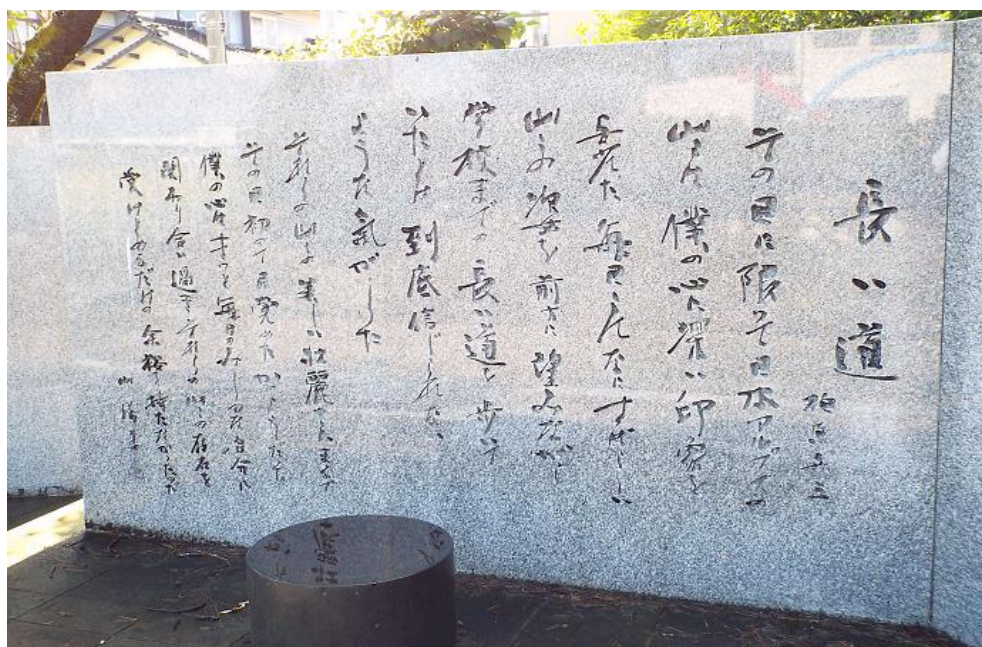 長い道
柏原兵三
その日に限って日本アルプスの
山々は僕の心に深い印象を
与えた 毎日こんなにすばらしい
山々の姿を前方に望みながら
学校までの長い道を歩いて
いたとは到底信じられない
ような気がした
それらの山々の美しい壮麗さに まるで
その日初めて目覚めたかのようだった
僕の心はきっと毎日のみじめな自分に
関わり合い過ぎ それらの山々の存在を
受けとめるだけの余裕を持たなかったのだ